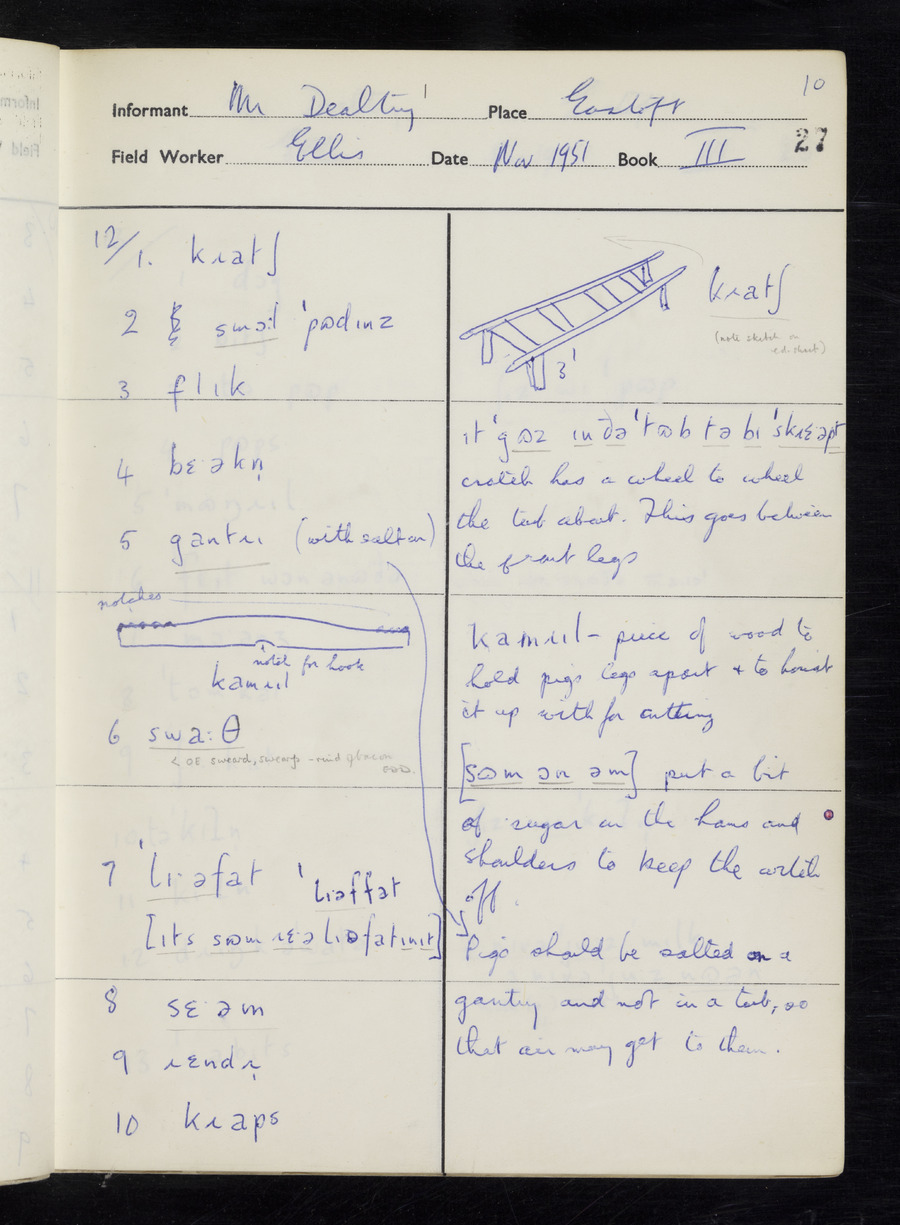 10
Informant Mr Dealtry Place Eastoft
Field Worker Ellis Date Nov 1951 Book III
27
12/1. kɹatʃ
2 swɔ:l 'pʊdɪnz
3 flɪk
4 bɛ·əkn̩
5 gantɹɪ (with salt on)
notches
notch for hook
kamɹɪl
6 swa:θ
< OE sweard, swearþ - rind of bacon
7 'lɪ·əfat 'lɪəffat
[ɪts sʊm ɹɛə lɪəfat ɪnɪt]
8 sɛ·əm
9 ɹɛndɹ̩
10 kɹaps
kɹatʃ
(note sketch on
3'
ɪt 'gʊz ɪn də 'tʊb tə bɪ 'skɹɛəpt
cratch has a wheel to wheel
the tub about. This goes between
the front legs
kamɹɪl - piece of wood to
hold pigs legs apart & to hoist
it up with for cutting
[sʊm ɔn əm] put a bit
of sugar on the hams and
shoulders to keep the
off.
Pigs should be salted on a
gantry and not in a tub, so
that air may get to them.